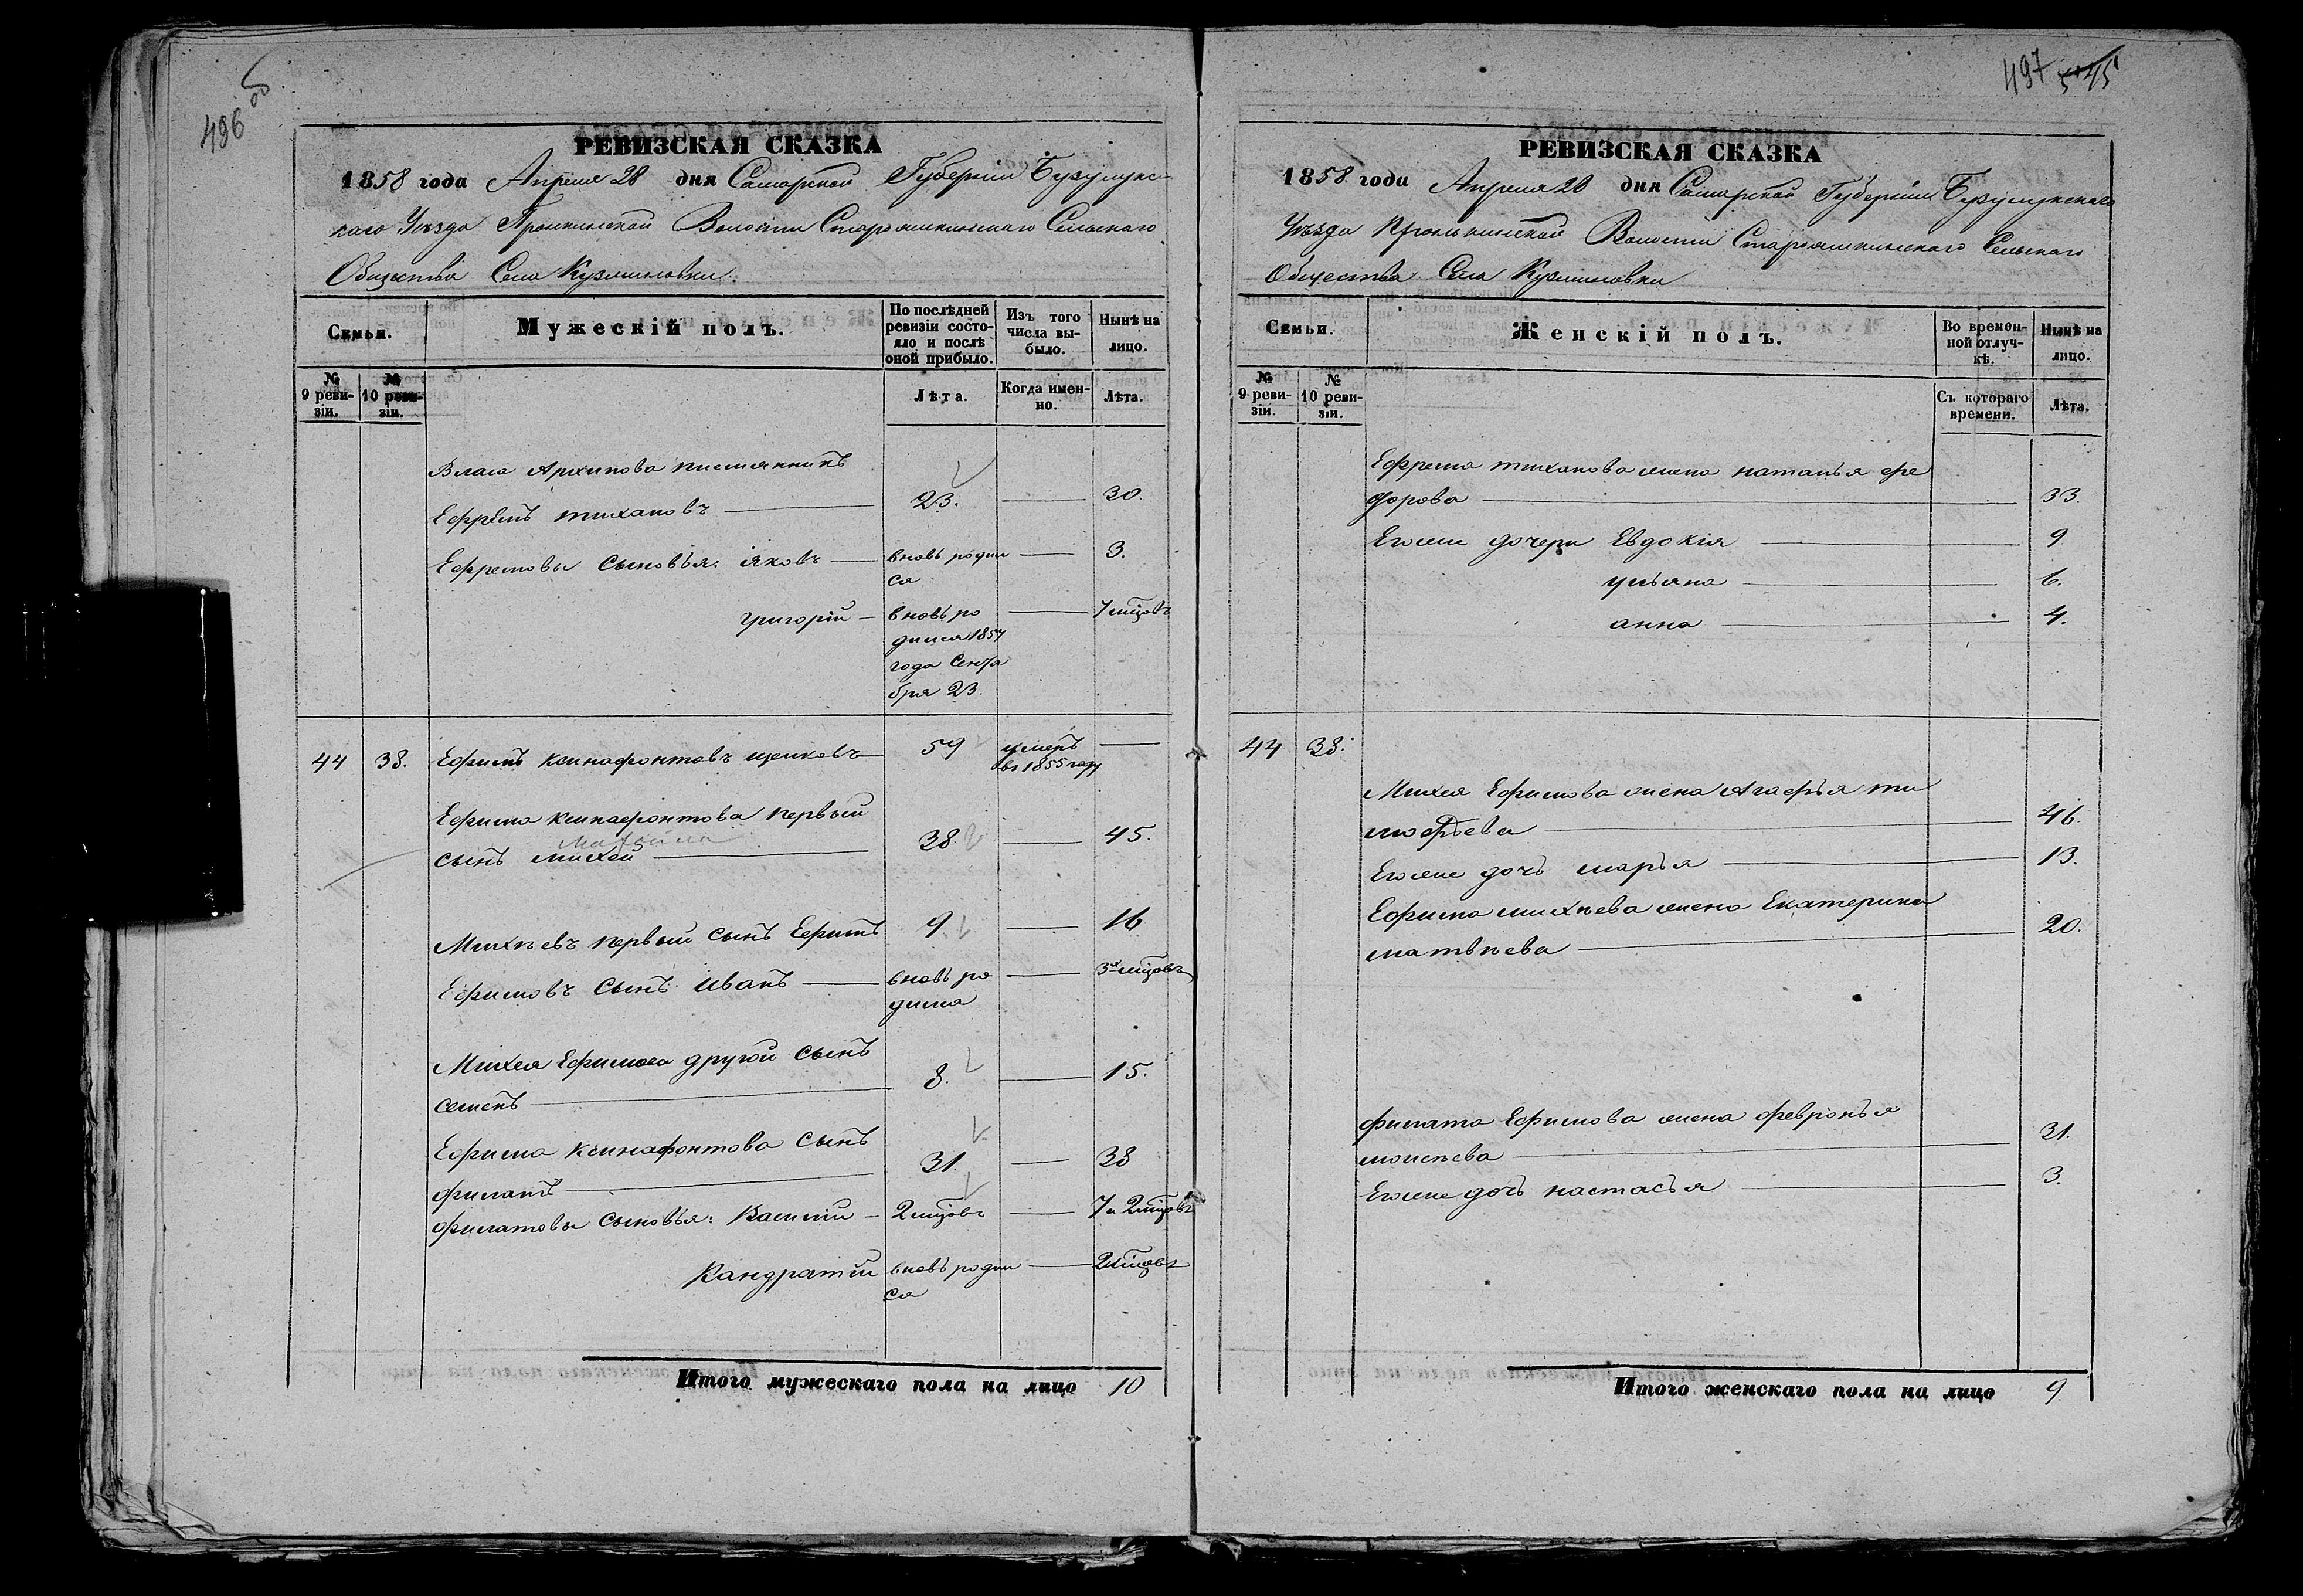 496 об
РЕВИЗСКАЯ СКАЗКА
1858 года Апреля 28 дня Самарской Губернiи Бузулукс-
каго Уѣзда Пронкинской Волости Староашкинскаго Сельскаго
Общества Села Кузминовки.
Семьи.
Мужескiй полъ.
По послѣдней ревизiи состо-
яло и послѣ оной прибыло.
Изъ того числа вы-
было.
Нынѣ на лицо.
№ 9 реви-
зiи.
№ 10 реви-
зiи.
Лѣта.
Когда имен-
но.
Лѣта.
Власа Архипова племянникъ
Ефремъ тихановъ 23. 30.
Ефремовы сыновья: яковъ вновь родил 3.
ся
григорiй вновь ро 7 мцовъ
дился 1857
года Сентя
бря 23.
44 38. Ефимъ ксинафонтовъ щелковъ 59 умеръ
въ 1855 году
Ефима ксинафонтова первый
сынъ михей 38. 45.
Михѣевъ первый сынъ Ефимъ 9. 16
Ефимовъ сынъ иванъ вновь ро 3х мцовъ
дился
Михея Ефимова другой сынъ
семенъ 8. 15.
Ефима ксинафонтова сынъ
филатъ 31. 38
филатовы сыновья: Василiй 2 мцовъ 7 и 2 мцовъ
Кандратiй вновь родил 2 мцовъ
ся
Итого мужескаго пола на лицо 10
497 545
РЕВИЗСКАЯ СКАЗКА
1858 года Апреля 28 дня Самарской Губернiи Бузулукскаго
Уѣзда Пронькинской Волости Староашкинскаго Сельскаго
Общества Села Кузминовки
Семьи.
Женскiй полъ.
Во времен-
ной отлуч-
кѣ.
Нынѣ на лицо.
№ 9 реви-
зiи.
№ 10 реви-
зiи.
Съ котораго времени.
Лѣта.
Ефрема тиханова жена наталья фе
дорова 33.
Егоже дочери Евдокiя 9
ульяна 6.
анна 4.
44 38.
Михея Ефимова жена Агафья ти
мофѣева 46.
Егоже дочь марья 13.
Ефима михѣева жена Екатерина
матвѣева 20.
филата Ефимова жена февронья
моисѣева 31.
Егоже дочь настасья 3.
Итого женскаго пола на лицо 9